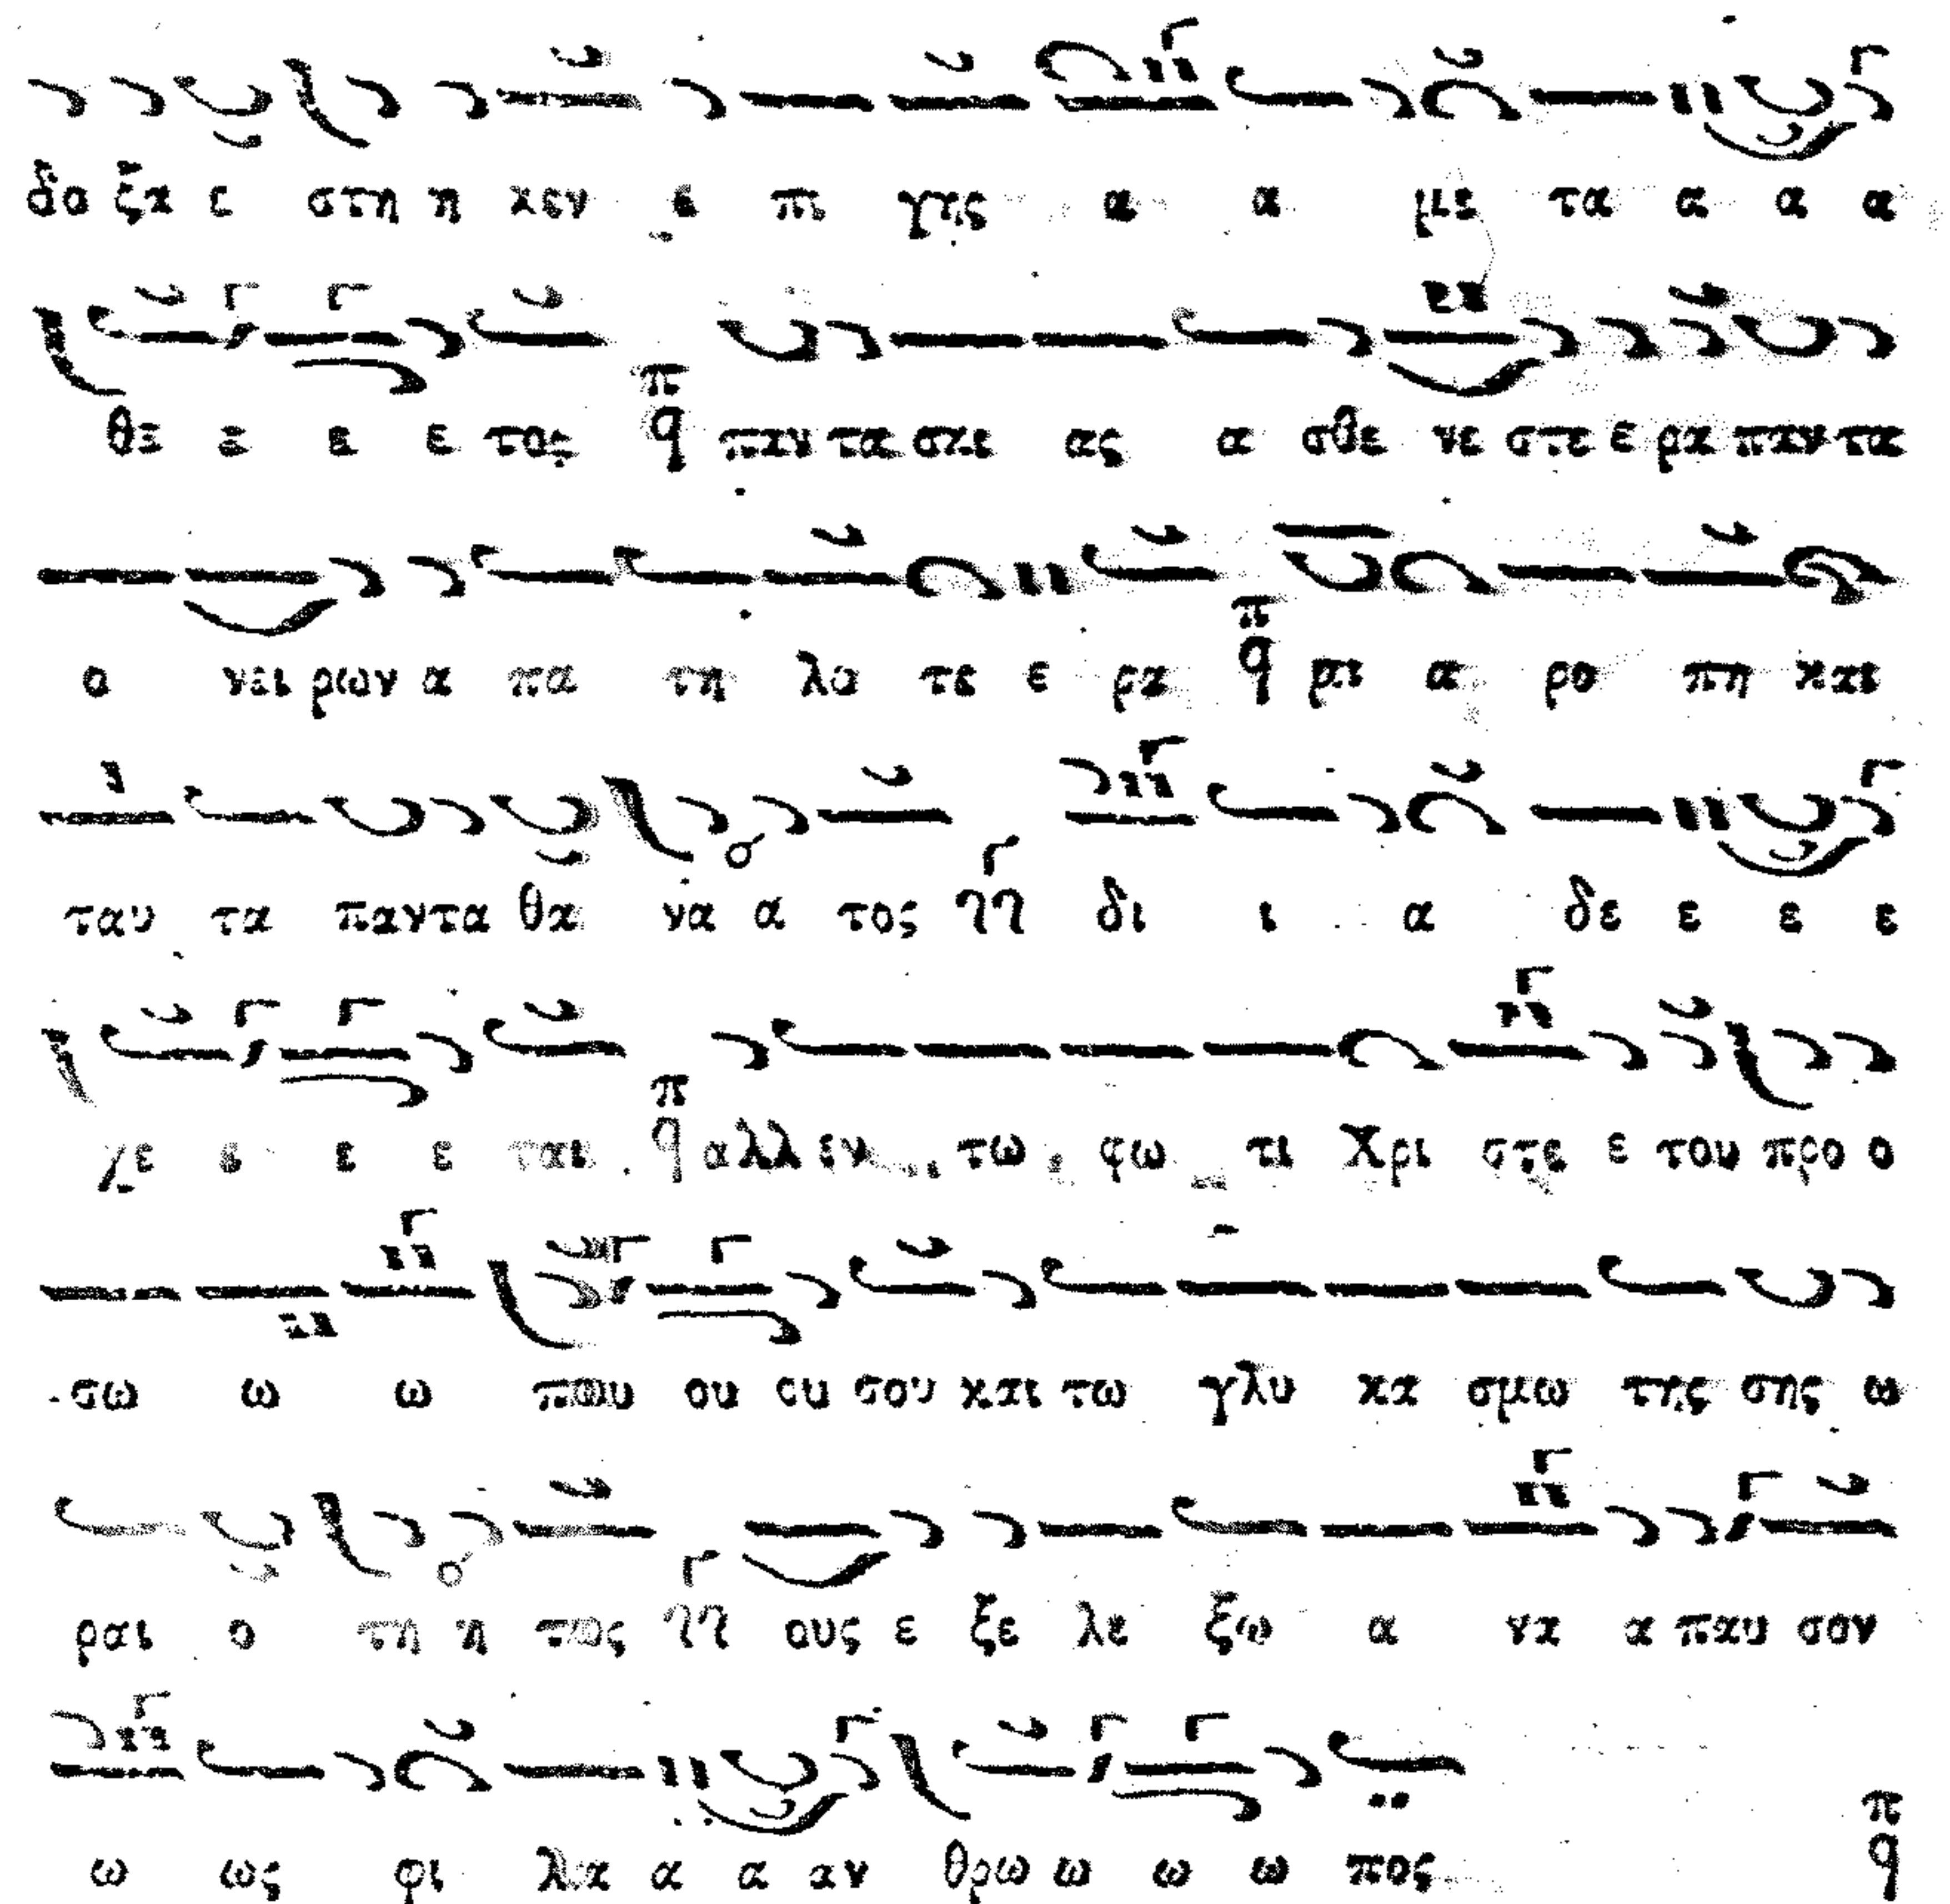 δο ξα ε στη η κεν ε πι γης α α με τα α α α
θε ε ε ε τος π q παν τα σκι ας α σθε νε στε ε ρα παν τα
ο νει ρων α πα τη λο τε ε ρα π q μι α ρο πη και
ταυ τα παν τα θα να α τος δι ι α δε ε ε ε
χε ε ε ε ται π q αλλ εν τω φω τι Χρι στε ε του προ ο
σω ω ω που ου ου σου και τω γλυ κα σμω της σης ω
ραι ο τη η τος ους ε ξε λε ξω α να α παυ σον
ω ως φι λα α α αν θρω ω ω ω πος π q